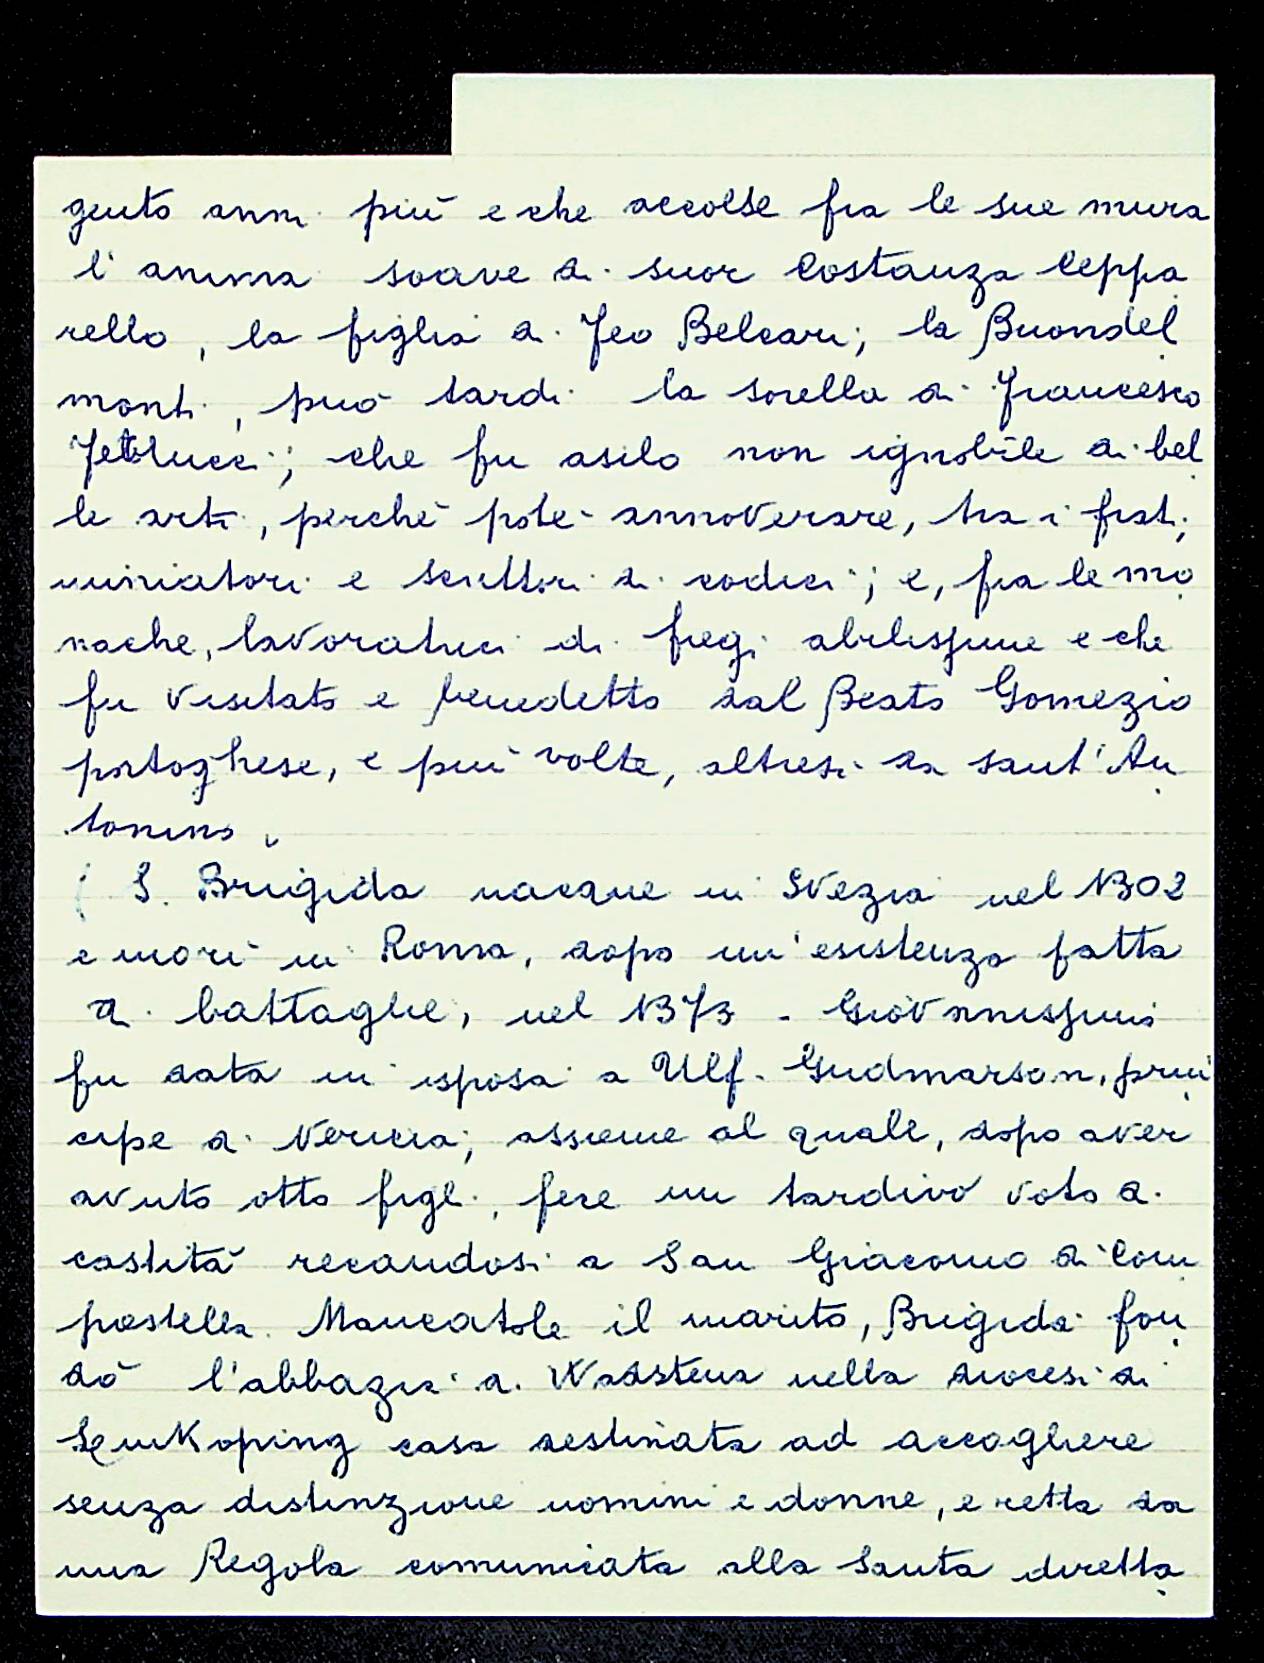 gento anni più e che accolse fra le sue mura
l'anima soave di suor Costanza Ceppa
rello, la figlia di Feo Belcari; la Buondel
monti, più tardi la sorella di Francesco
che fu asilo non ignobile di bel
le arti, perché poté annoverare, tra i frati,
miniatori e scrittori di codici; e, fra le mo
nache, lavoratrici di fregi abilissime e che
fu visitato e benedetto dal Beato Gomezio
portoghese, e più volte, altresì da sant'An
tonino.
( S. Brigida nacque in Svezia nel 1302
e morì in Roma, dopo un'esistenza fatta
di battaglie, nel 1373 - Giovannissima
fu data in isposa a Ulf. Gudmarson, prin
cipe di Nericia, assieme al quale, dopo aver
avuto otto figli, fece un tardivo voto di
castità recandosi a San Giacomo di Com
postella. Mancatole il marito, Brigida fon
dò l'abbazia di Wadstena nella diocesi di
Linkoping casa destinata ad accogliere
senza distinzione uomini e donne, e retta da
una Regola comunicata alla Santa diretta